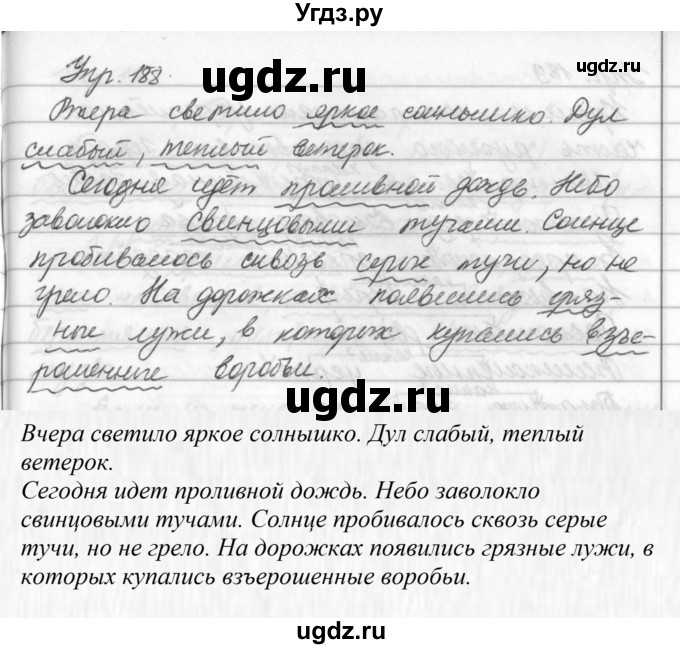 Угдз.ру
Упр. 188.
ugdz.ru
Вчера светило яркое солнышко. Дул
слабый, теплый ветерок.
ugdz.ru
Сегодня идёт проливной дождь. Небо
заволокло свинцовыми тучами. Солнце
пробивалось сквозь серые тучи, но не
грело. На дорожках появились гряз-
ные лужи, в которых купались взъе-
рошенные воробьи.
ugdz.ru
Вчера светило яркое солнышко. Дул слабый, теплый
ветерок.
Сегодня идет проливной дождь. Небо заволокло
свинцовыми тучами. Солнце пробивалось сквозь серые
тучи, но не грело. На дорожках появились грязные лужи, в
которых купались взъерошенные воробьи.
ugdz.ru